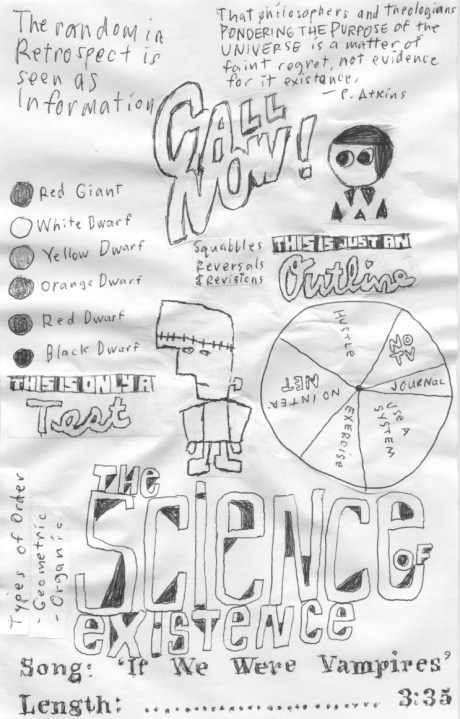 The random in
Retrospect is
seen as
Information
That philosophers and theologians
PONDERING THE PURPOSE of the
UNIVERSE is a matter of
faint regret, not evidence
for it existence.
- P. Atkins
CALL
NOW!
Red Giant
White Dwarf
Yellow Dwarf
Orange Dwarf
Red Dwarf
Black Dwarf
Squabbles
Reversals
& Revisions
THIS IS JUST AN
Outline
THIS IS ONLY A
Test
HUSTLE
JOURNAL
USE A
SYSTEM
EXERCISE
NO INTER
NET
Types of Order
- Geometric
- Organic
THE
SCIENCE
OF
EXISTENCE
Song: 'If We Were Vampires'
Length: ........................ 3:35